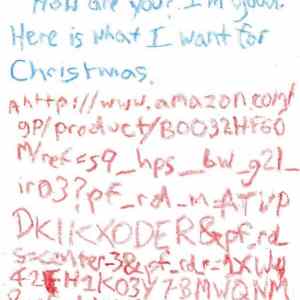 How are you? I'm good.
Here is what I want for
Christmas.
A http://www.amazon.com/
gp/product/B0032HF60
M/ref=s9_hps_bw_g21_
ir03?pf_rd_m=ATVP
DKIKX0DER&pf_rd_
s=center-3&pf_rd_r=1XW4
42FH1K03Y7BMWQNM